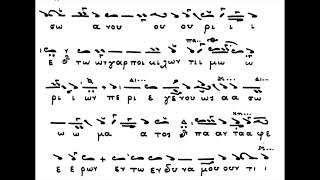 σω α νου ου ου ρι ι ι
ε ο των γαρ ποι κι λων τι ι μω ω
ρι ι ων πε ρι ε γε νου ως α α σω
ω ω μα α τος ο πα αν τα α φε
ε ε ρων εν τω εν δυ να μου ουν τι ι